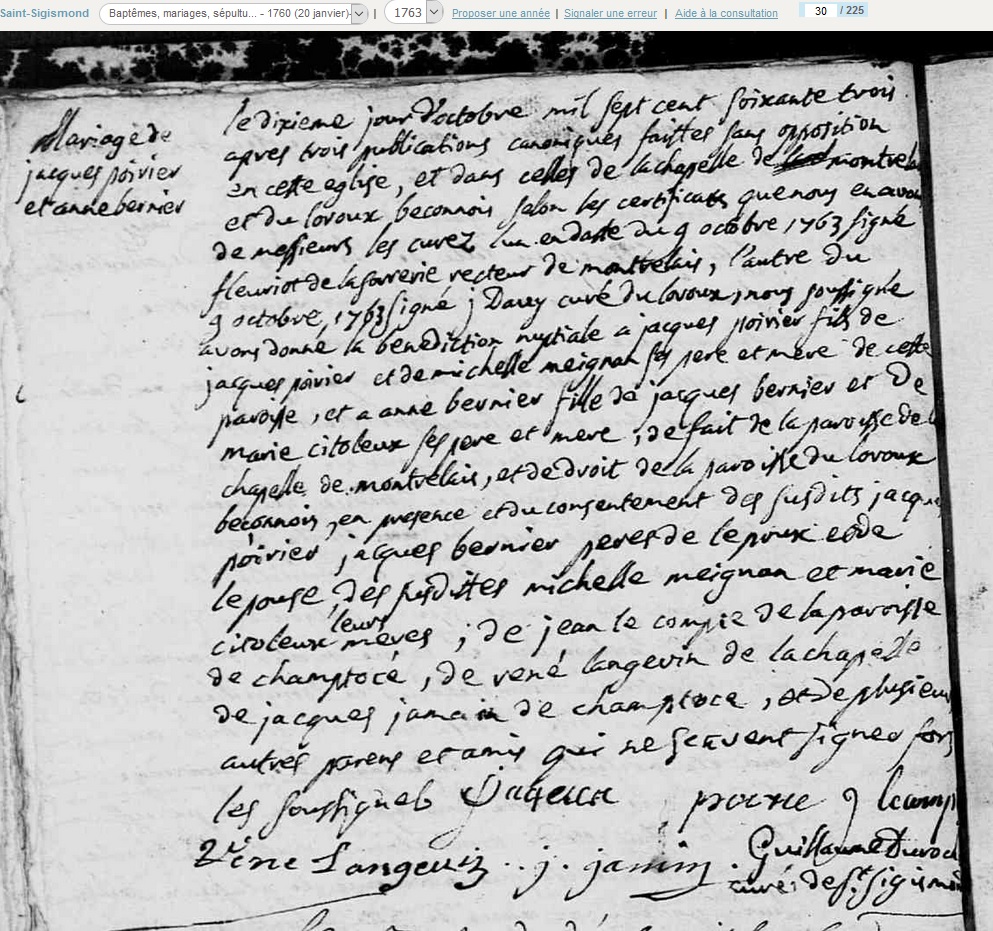 Saint-Sigismond Baptêmes, mariages, sépultu... - 1760 (20 janvier)- | 1763 | Proposer une année | Signaler une erreur | Aide à la consultation 30 / 225
Mariage de
jacques poirier
et anne bernier
le dixieme jour d'octobre mil sept cent soixante trois
apres trois publications canoniques faittes sans opposition
en cette eglise, et dans celles de la chapelle de montrela
et du loroux beconnois selon les certificats que nous en avon
de messieurs les curez l'un en datte du 9 octobre 1763 signé
fleuriot de la sorrerie recteur de montrelais, l'autre du
9 octobre, 1763 signé j Davy curé du loroux, nous soussigné
avons donné la benediction nuptiale a jacques poirier fils de
jacques poirier et de michelle meignan ses pere et mere de cette
paroisse, et a anne bernier fille de jacques bernier et De
marie citoleux ses pere et mere, de fait de la paroisse de la
chapelle de montrelais, et de droit de la paroisse du loroux
beconnois, en presence et du consentement des susdits jacques
poirier jacques bernier peres de lepoux et de
lepouse, des susdittes michelle meignan et marie
citoleux leurs mères ; de jean le compte de la paroisse
de champtocé, de rené langevin de la chapelle
de jacques jamain de champtoce, et de plusieurs
autrés parens et amis qui ne scavent signer fors
les soussignés
René Langevin . j. jamin . Guillaume Duroc
curé de St sigismon